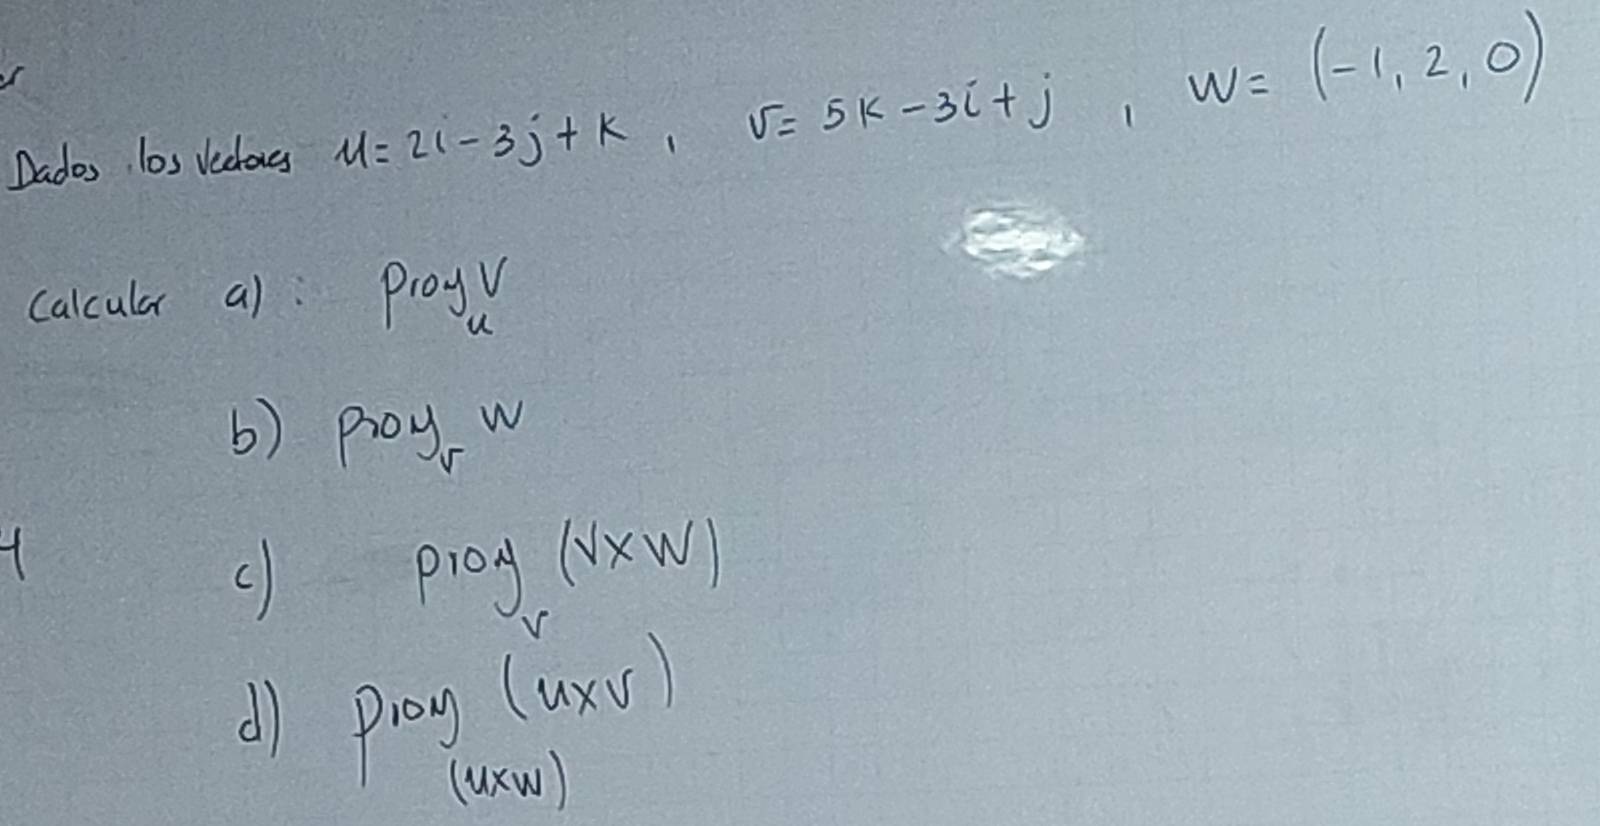 Dados los vectores u = 2i - 3j + k , v = 5k - 3i + j , w = (-1, 2, 0)
Calcular a) : Proy_u V
b) proy_v W
c) proy_v (V×W)
4
d) proy_(u×w) (u×v)